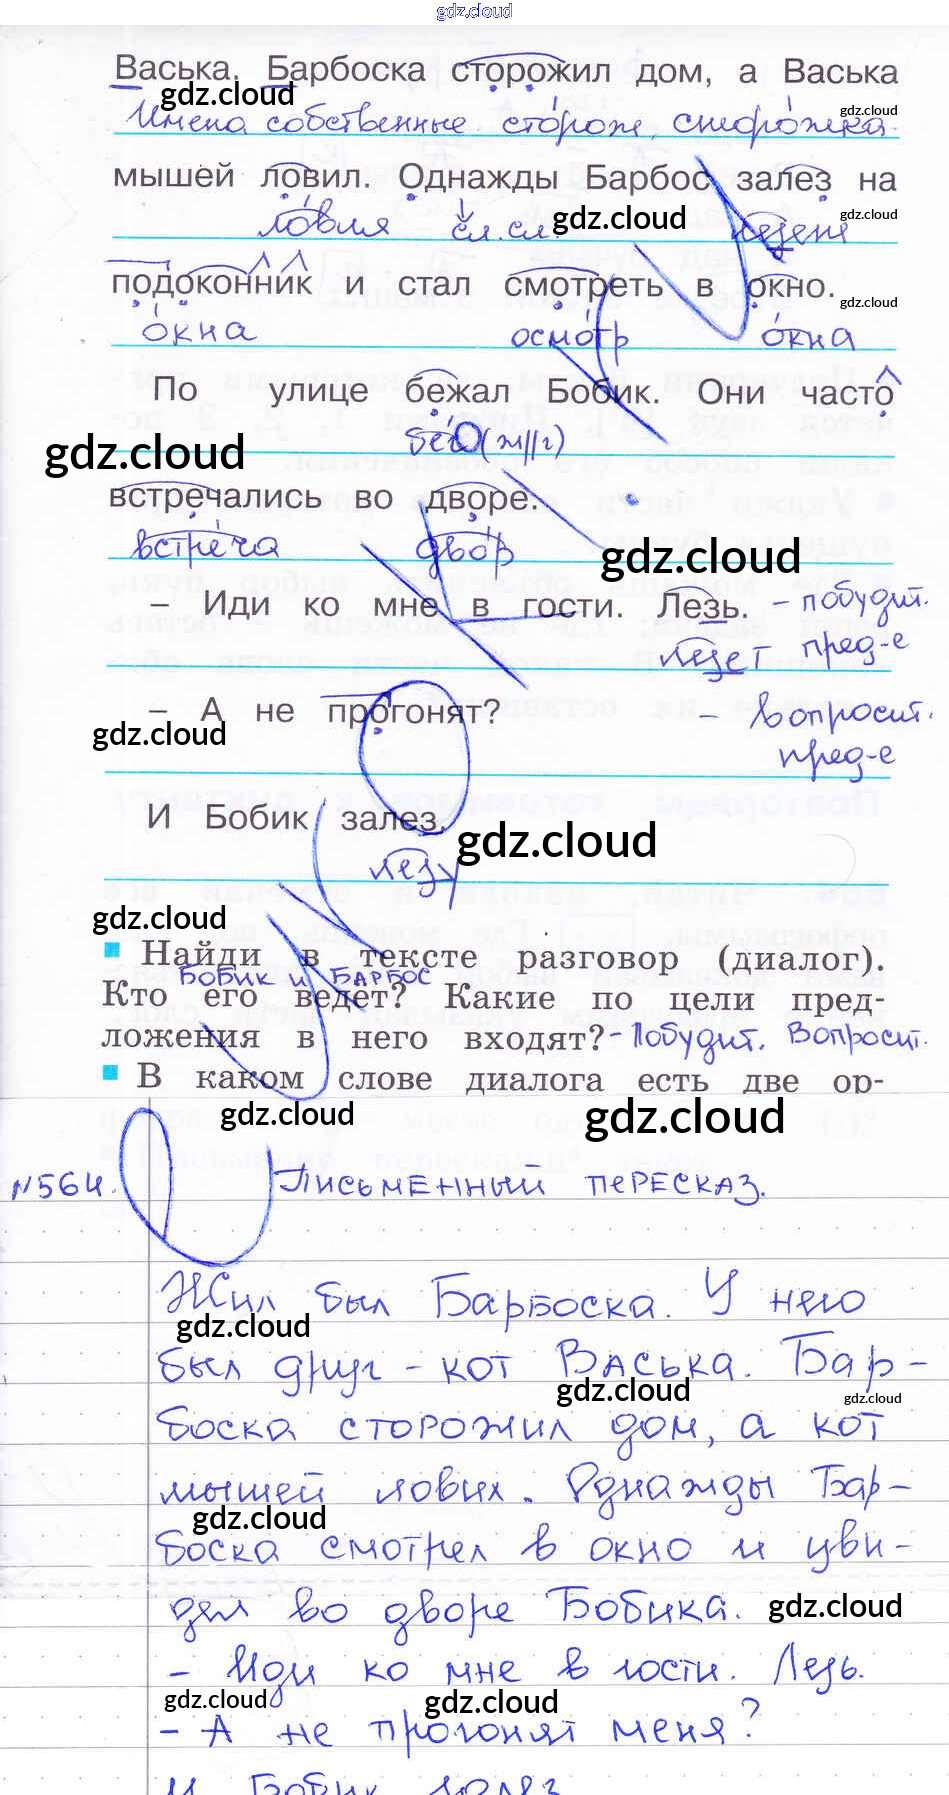 gdz.cloud
Васька. Барбоска сторожил дом, а Васька
gdz.cloud
gdz.cloud
Имена собственные. сторож, сторожка.
мышей ловил. Однажды Барбос залез на
gdz.cloud
gdz.cloud
ловля сл.сл. лезет
подоконник и стал смотреть в окно.
gdz.cloud
окна осмотр окна
По улице бежал Бобик. Они часто
gdz.cloud
бег (ж//г)
встречались во дворе.
встреча двор
gdz.cloud
– Иди ко мне в гости. Лезь. - побудит.
лезет пред-е
– А не прогонят? - вопросит.
gdz.cloud
пред-е
И Бобик залез.
gdz.cloud
лезу
gdz.cloud
Найди в тексте разговор (диалог).
БОБИК И БАРБОС
Кто его ведёт? Какие по цели пред-
ложения в него входят? - Побудит. Вопросит.
В каком слове диалога есть две ор-
gdz.cloud
gdz.cloud
№564. Письменный пересказ.
Жил был Барбоска. У него
gdz.cloud
был друг - кот Васька. Бар-
gdz.cloud
gdz.cloud
боска сторожил дом, а кот
мышей ловил. Однажды Бар-
gdz.cloud
боска смотрел в окно и уви-
дел во дворе Бобика.
gdz.cloud
- Иди ко мне в гости. Лезь.
gdz.cloud
gdz.cloud
- А не прогонят меня?
И Бобик залез